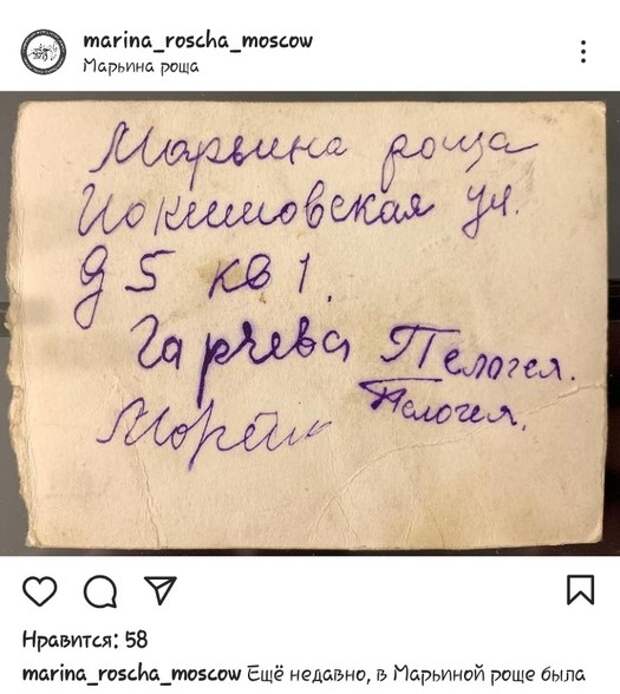 marina_roscha_moscow
Марьина роща
Марьина роща
ул.
д 5 кв 1.
Гарчева Пелогея.
Пелогея.
Нравится: 58
marina_roscha_moscow Ещё недавно, в Марьиной роще была